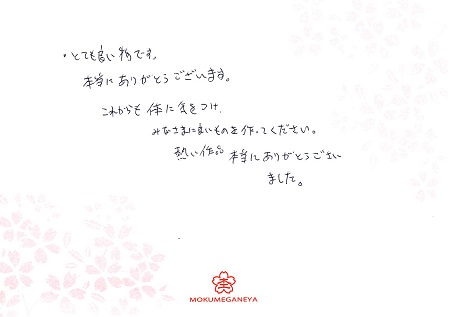 ・とても良い物です。
本当にありがとうございます。
これからも 体に気をつけ、
みなさまに良いものを作ってください。
熱い作品 本当にありがとうござい
ました。
MOKUMEGANEYA